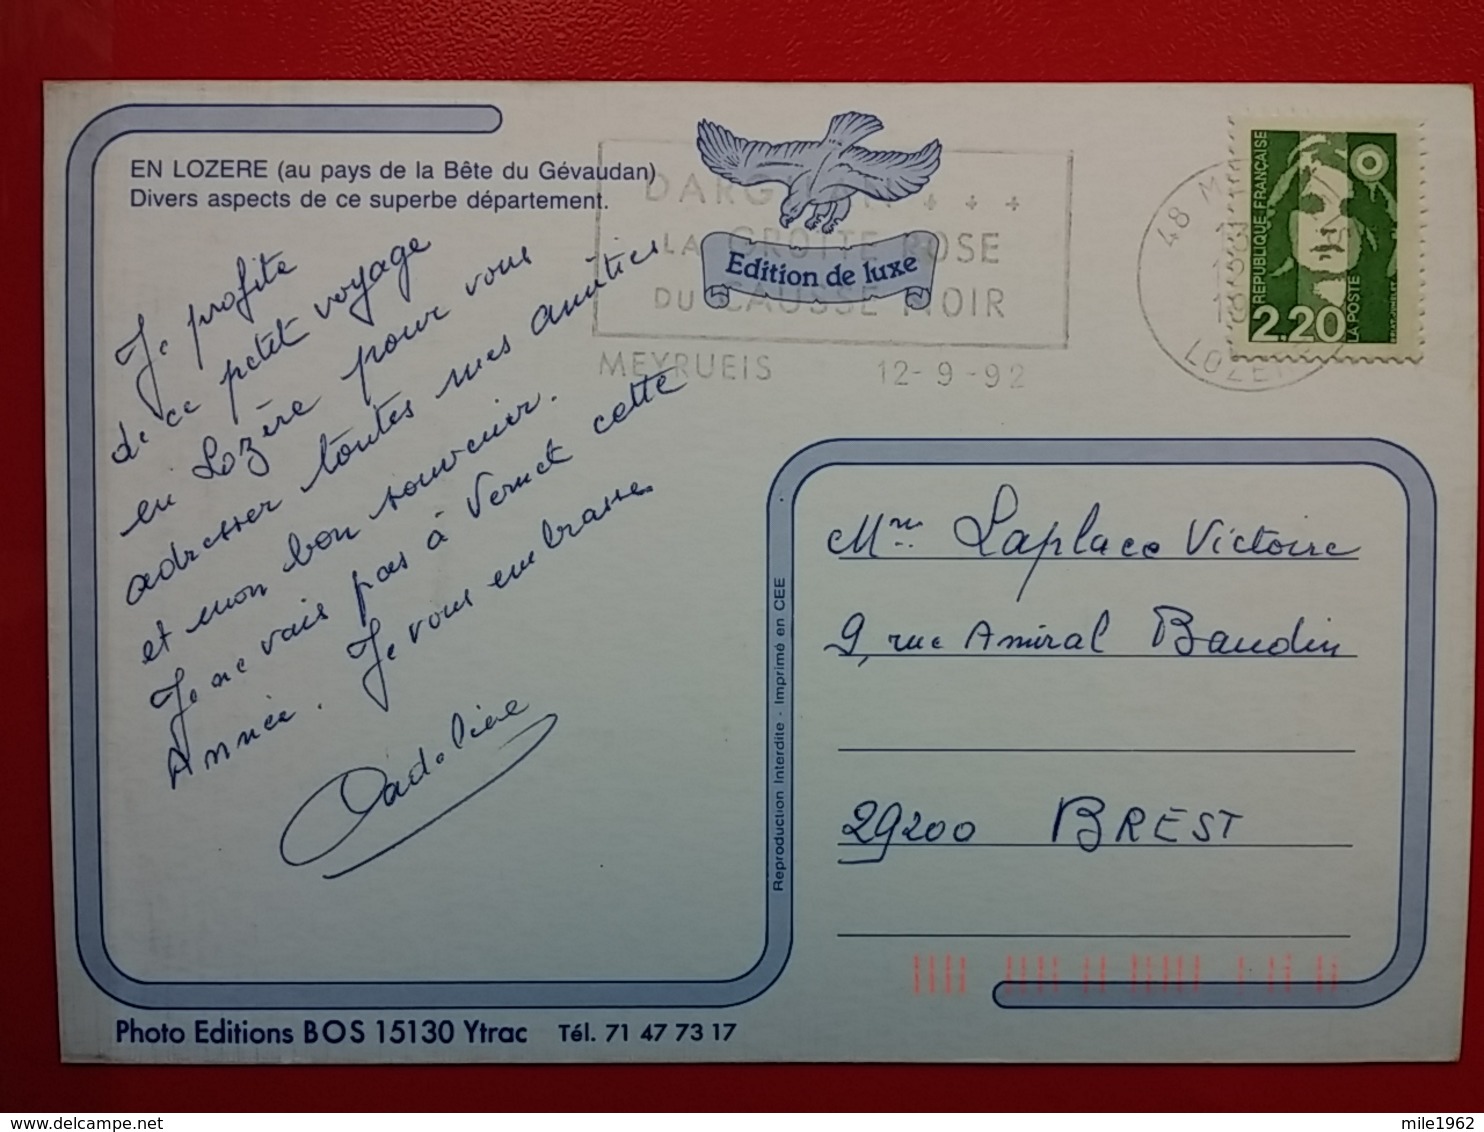 EN LOZERE (au pays de la Bête du Gévaudan)
Divers aspects de ce superbe département.
Je profite
de ce petit voyage
en Lozère pour vous
adresser toutes mes amitiés
et mon bon souvenir.
Je ne vais pas à Vernet cette
Année. Je vous embrasse
Edition de luxe
DARGILAN
LA GROTTE ROSE
DU CAUSSE NOIR
MEYRUEIS 12-9-92
48
LOZERE
REPUBLIQUE FRANÇAISE
2,20
LA POSTE
Mme Laplace Victoire
9, rue Amiral Baudin
29200 BREST
Reproduction Interdite - Imprimé en CEE
Photo Editions BOS 15130 Ytrac Tél. 71 47 73 17
mile1962